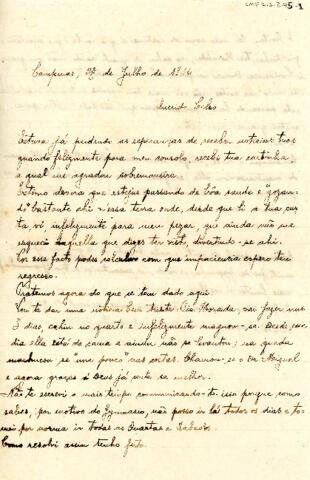 CMP 2.1.2.245-1
Campinas, 28 de Julho de 1916
Querido Celso
Estava já perdendo as esperanças de receber noticias tuas
quando felizmente para meu consolo, recebi tua cartinha,
a qual me agradou sobremaneira.
Estimo devéras que estejas passando de bôa saude e "gozan-
do" bastante ahi n'essa terra onde, desde que li a tua car-
ta vi, infelizmente para meu pezar, que ainda não me
esqueci daquella que dizes ter visto, divertindo-se ahi.
Por esse facto podes calcular com que impaciencia espero teu
regresso.
Tratemos agora do que se tem dado aqui.
Vou te dar uma noticia bem triste. Tia vai fazer uns
3 dias, cahiu no quarto e infelizmente magoou-se. Desde esse
dia ella está de cama e ainda não se levantou; na queda
machucou-se "um" pouco nas costas. Chamou-se o Dr. Miguel
e agora graças á Deus já está se melhor.
Não te escrevi a mais tempo communicando-te isso porque, como
sabes, por motivo do Gymnasio, não posso ir lá todos os dias e to-
mei por norma ir todas as Quartas e Sabbados.
Como resolvi assim tenho feito.